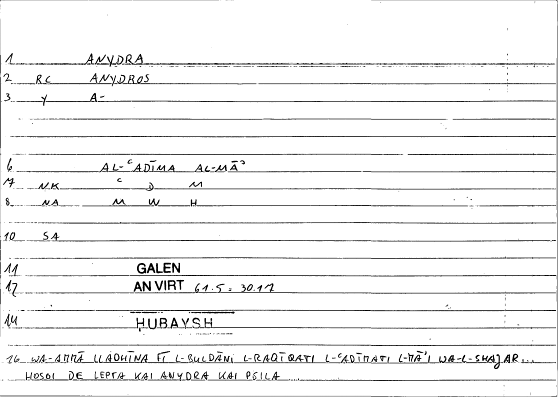 1 ANYDRA
2 RC ANYDROS
3 Y A-
6 AL-ʿADĪMA AL-MĀʾ
7 NK ʿ D M
8 NA M W H
10 SA
11 GALEN
12 AN VIRT 61.5 = 30.17
14 ḤUBAYSH
16 WA-AMMĀ LLADHĪNA FĪ L-BULDĀNI L-RAQĪQATI L-ʿADĪMATI L-MĀʾI WA-L-SHAJAR...
HOSOI DE LEPTA KAI ANYDRA KAI PSILA